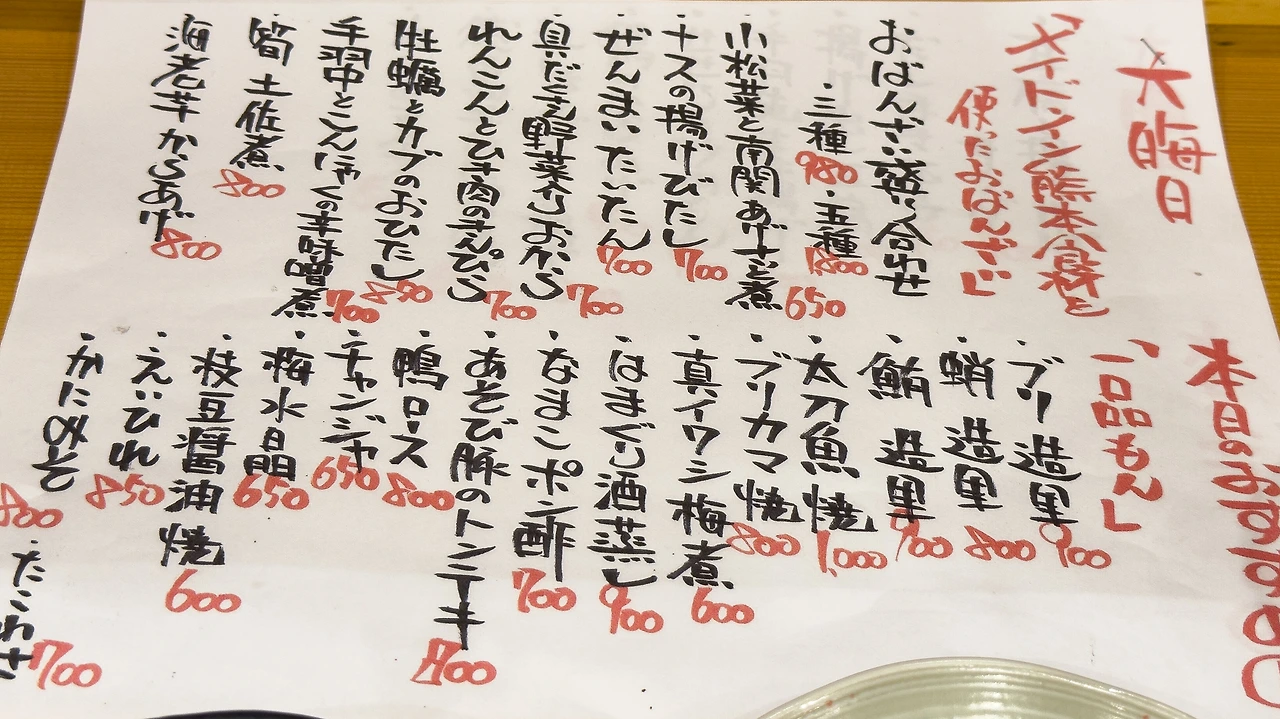 大晦日
本日のおすすめ
「メイドイン熊本食材を
使ったおばんざい」
おばんざい盛り合わせ
・三種 980 ・五種 1,800
・小松菜と南関あげさっと煮 650
・ナスの揚げびたし 700
・ぜんまいたいたん 700
・具だくさん野菜入りおから 700
・れんこんとひき肉のきんぴら 700
・牡蠣とカブのおひたし 850
・手羽中とこんにゃくの辛味噌煮 700
・筍 土佐煮 800
・海老芋からあげ 800
「一品もん」
・ブリ 造里 900
・蛸 造里 800
・鮪 造里 900
・太刀魚 焼 1,000
・ブリカマ 焼 800
・真イワシ梅煮 600
・はまぐり酒蒸し 900
・なまこポン酢 700
・あそび豚のトンテキ
・鴨ロース 800
・チャンジャ 650
・梅水晶 650
・枝豆醤油焼 600
・えいひれ 850
・かにみそ 800
・たこわさ 700